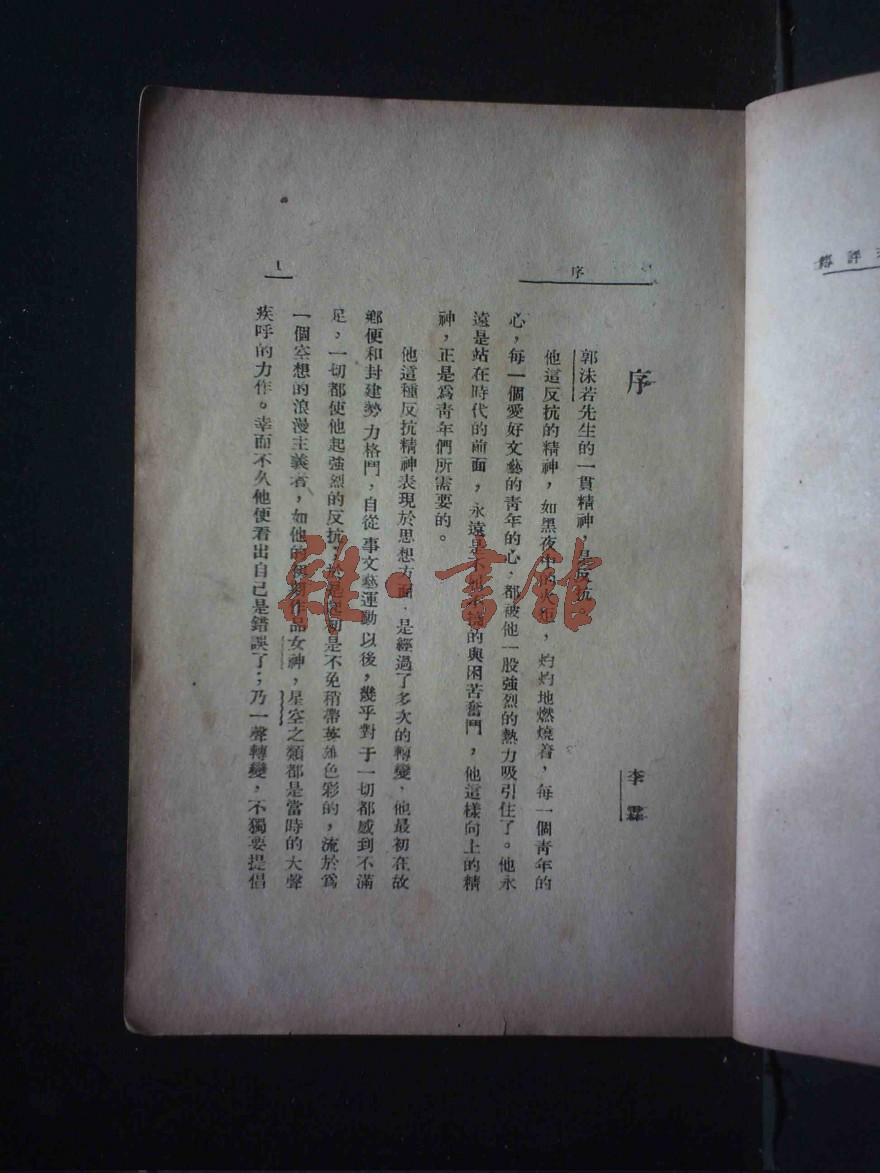 序
1
序
李霖
郭沫若先生的一貫精神，是反抗
他這反抗的精神，如黑夜中的火炬，灼灼地燃燒着，每一個青年的
心，每一個愛好文藝的青年的心，都被他一股強烈的熱力吸引住了。他永
遠是站在時代的前面，永遠是不屈不撓的與困苦奮鬥，他這樣向上的精
神，正是爲青年們所需要的。
他這種反抗精神表現於思想方面，是經過了多次的轉變，他最初在故
鄉便和封建勢力格鬥，自從事文藝運動以後，幾乎對于一切都感到不滿
足，一切都使他起強烈的反抗；於是起初是不免稍帶英雄色彩的，流於爲
一個空想的浪漫主義者，如他的初期作品女神，星空之類都是當時的大聲
疾呼的力作。幸而不久他便看出自己是錯誤了；乃一聲轉變，不獨要提倡
評
雜·書館